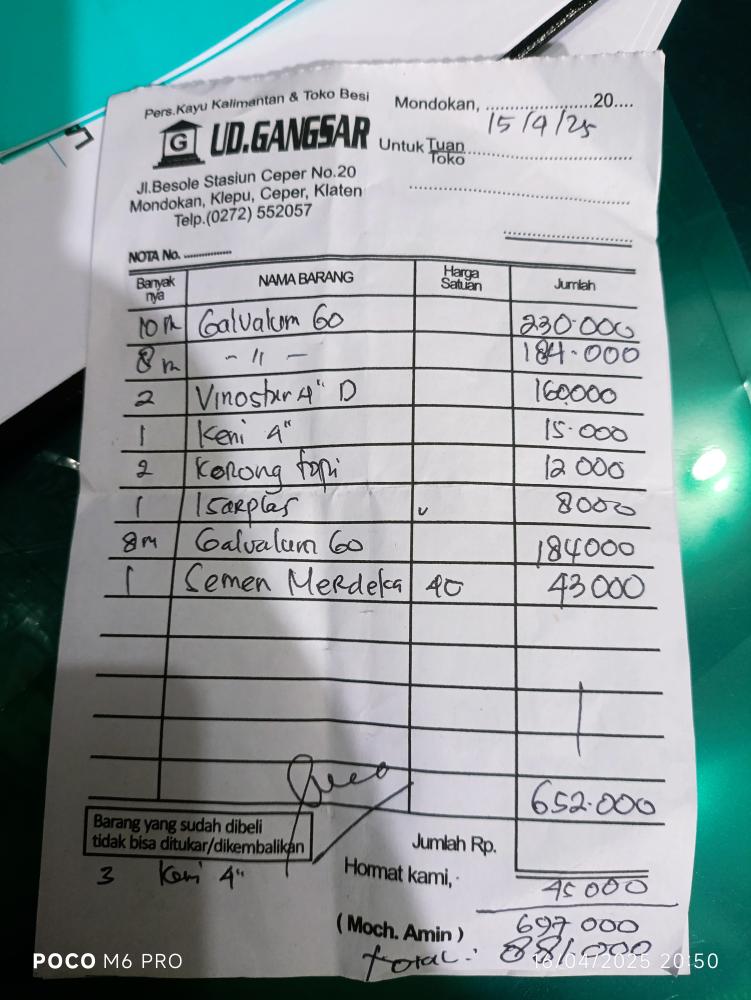 Pers.Kayu Kalimantan & Toko Besi
G UD.GANGSAR
Jl.Besole Stasiun Ceper No.20
Mondokan, Klepu, Ceper, Klaten
Telp.(0272) 552057
Mondokan, .....................20....
15/4/25
Untuk Tuan
Toko
NOTA No. ..............
Banyak nya NAMA BARANG Harga Satuan Jumlah
10 m Galvalum 60 230.000
8 m - " - 184.000
2 Vinostar 4" D 160.000
1 Keni 4" 15.000
2 Korong topi 12 000
1 Isarplas 8000
8m Galvalum 60 184000
1 Semen Merdeka 40 43 000
652.000
Barang yang sudah dibeli
tidak bisa ditukar/dikembalikan
Jumlah Rp.
3 Keni 4" 45 000
Hormat kami,
697 000
( Moch. Amin )
Total : 881.000
POCO M6 PRO
16/04/2025 20:50